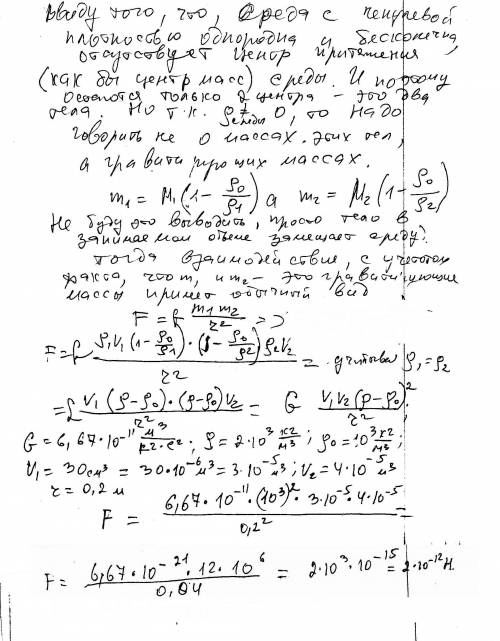 Ввиду того, что, среда с ненулевой
плотностью однородна и бесконечна,
отсутствует центр притяжения
(как бы центр масс) среды. И поэтому
остаются только 2 центра – это два
тела. Но т.к. ρ среды ≠ 0, то надо
говорить не о массах этих тел,
а гравитирующих массах.
m1 = M1(1 - ρ0/ρ1) а m2 = M2(1 - ρ0/ρ2)
Не буду это выводить, просто тело в
занимаемом объеме замещает среду.
Тогда взаимодействие, с учетом
факта, что m1 и m2 – это гравитирующие
массы примет обычный вид
F = f m1 m2 / r² =>
F = f ρ1V1(1 - ρ0/ρ1)·(1 - ρ0/ρ2)ρ2V2 / r² = учитывая ρ1 = ρ2
= f V1(ρ-ρ0)·(ρ-ρ0)V2 / r² = G V1V2(ρ-ρ0)² / r²
G = 6,67·10⁻¹¹ м³/кг·с²; ρ = 2·10³ кг/м³; ρ0 = 10³ кг/м³;
V1 = 30 см³ = 30·10⁻⁶ м³ = 3·10⁻⁵ м³; V2 = 4·10⁻⁵ м³
r = 0,2 м
F = 6,67·10⁻¹¹·(10³)²·3·10⁻⁵·4·10⁻⁵ / 0,2² =
F = 6,67·10⁻²¹·12·10⁶ / 0,04 = 2·10³·10⁻¹⁵ = 2·10⁻¹² Н.